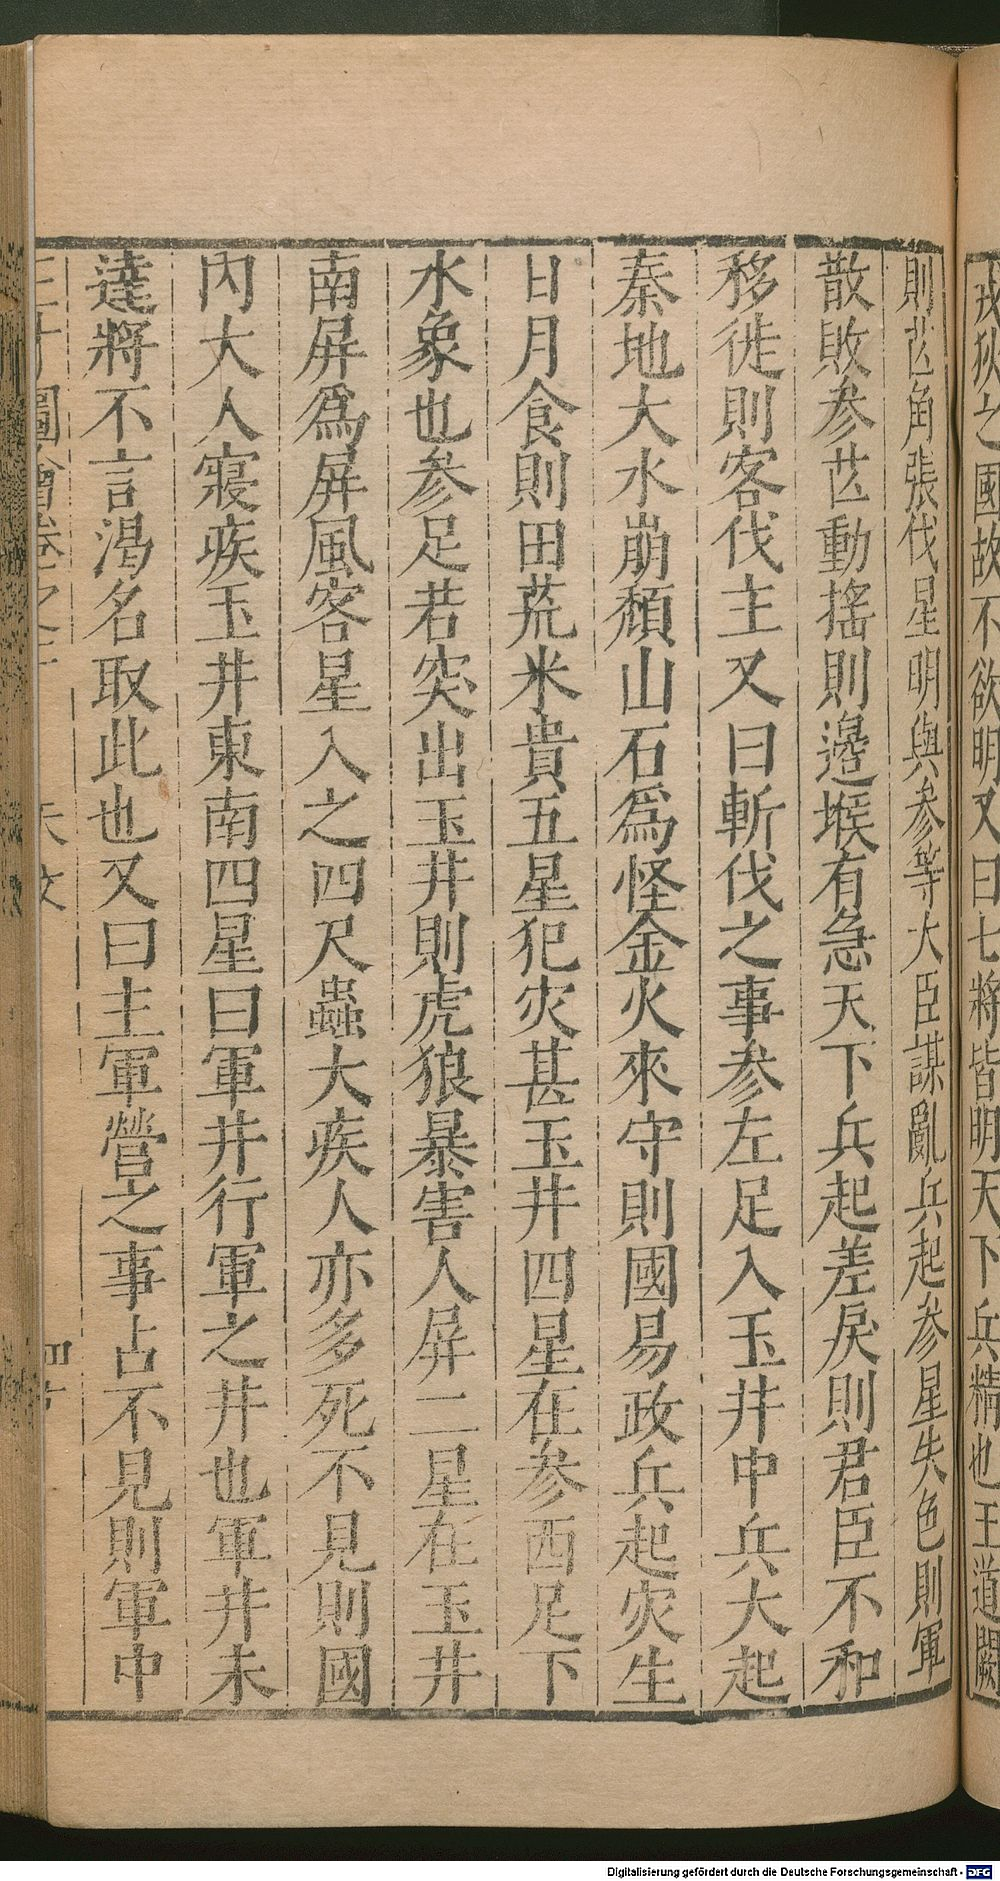 戎狄之國故不欲明又曰七將皆明天下兵精也王道闕
則芒角張伐星明與參等大臣謀亂兵起參星失色則軍
散敗參芒動搖則邊堠有急天下兵起差戾則君臣不和
移徙則客伐主又曰斬伐之事參左足入玉井中兵大起
秦地大水崩頹山石為怪金火來守則國易政兵起灾生
日月食則田荒米貴五星犯灾甚玉井四星在參西足下
水象也參足若突出玉井則虎狼暴害人屏二星在玉井
南屏為屏風客星入之四尺蟲大疾人亦多死不見則國
內大人寢疾玉井東南四星曰軍井行軍之井也軍井未
達將不言渴名取此也又曰主軍營之事占不見則軍中
圖會卷之
天文
Digitalisierung gefördert durch die Deutsche Forschungsgemeinschaft - DFG